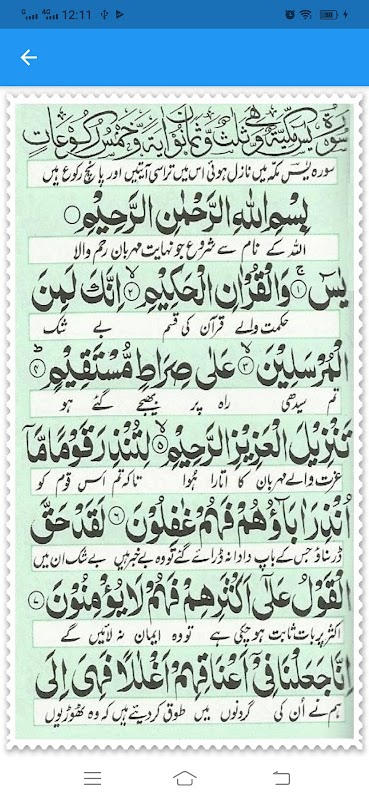 12:11
سورة يس مكية وهي ثلث وثمانون اية وخمس ركوعات
سورہ یٰسٓ مکہ میں نازل ہوئی اس میں تراسی آیتیں اور پانچ رکوع ہیں
بِسْمِ اللهِ الرَّحْمٰنِ الرَّحِيْمِ
اللہ کے نام سے شروع جو نہایت مہربان رحم والا
يٰسٓ ۚ﴿۱﴾ وَالْقُرْاٰنِ الْحَكِيْمِ ۙ﴿۲﴾ اِنَّكَ لَمِنَ
حکمت والے قرآن کی قسم بے شک
الْمُرْسَلِيْنَ ۙ﴿۳﴾ عَلٰى صِرَاطٍ مُّسْتَقِيْمٍ ؕ﴿۴﴾
تم سیدھی راہ پر بھیجے گئے ہو
تَنْزِيْلَ الْعَزِيْزِ الرَّحِيْمِ ۙ﴿۵﴾ لِتُنْذِرَ قَوْمًا مَّاۤ
عزت والے مہربان کا اتارا ہوا تاکہ تم اس قوم کو
اُنْذِرَ اٰبَآؤُهُمْ فَهُمْ غٰفِلُوْنَ ﴿۶﴾ لَقَدْ حَقَّ
ڈر سناؤ جس کے باپ دادا نہ ڈرائے گئے تو وہ بے خبر ہیں بے شک ان میں
الْقَوْلُ عَلٰۤى اَكْثَرِهِمْ فَهُمْ لَا يُؤْمِنُوْنَ ﴿۷﴾
اکثر پر بات ثابت ہو چکی ہے تو وہ ایمان نہ لائیں گے
اِنَّا جَعَلْنَا فِيْۤ اَعْنَاقِهِمْ اَغْلٰلًا فَهِىَ اِلَى
ہم نے اُن کی گردنوں میں طوق کر دیئے ہیں کہ وہ ٹھوڑیوں